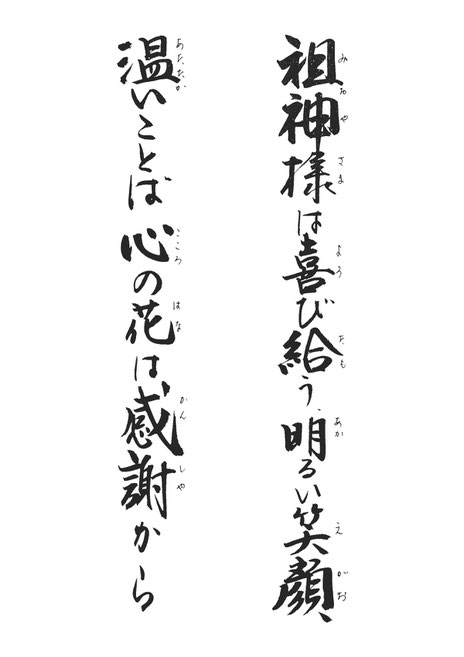 祖神様は喜び給う、明るい笑顔、
温いことば 心の花は、感謝から